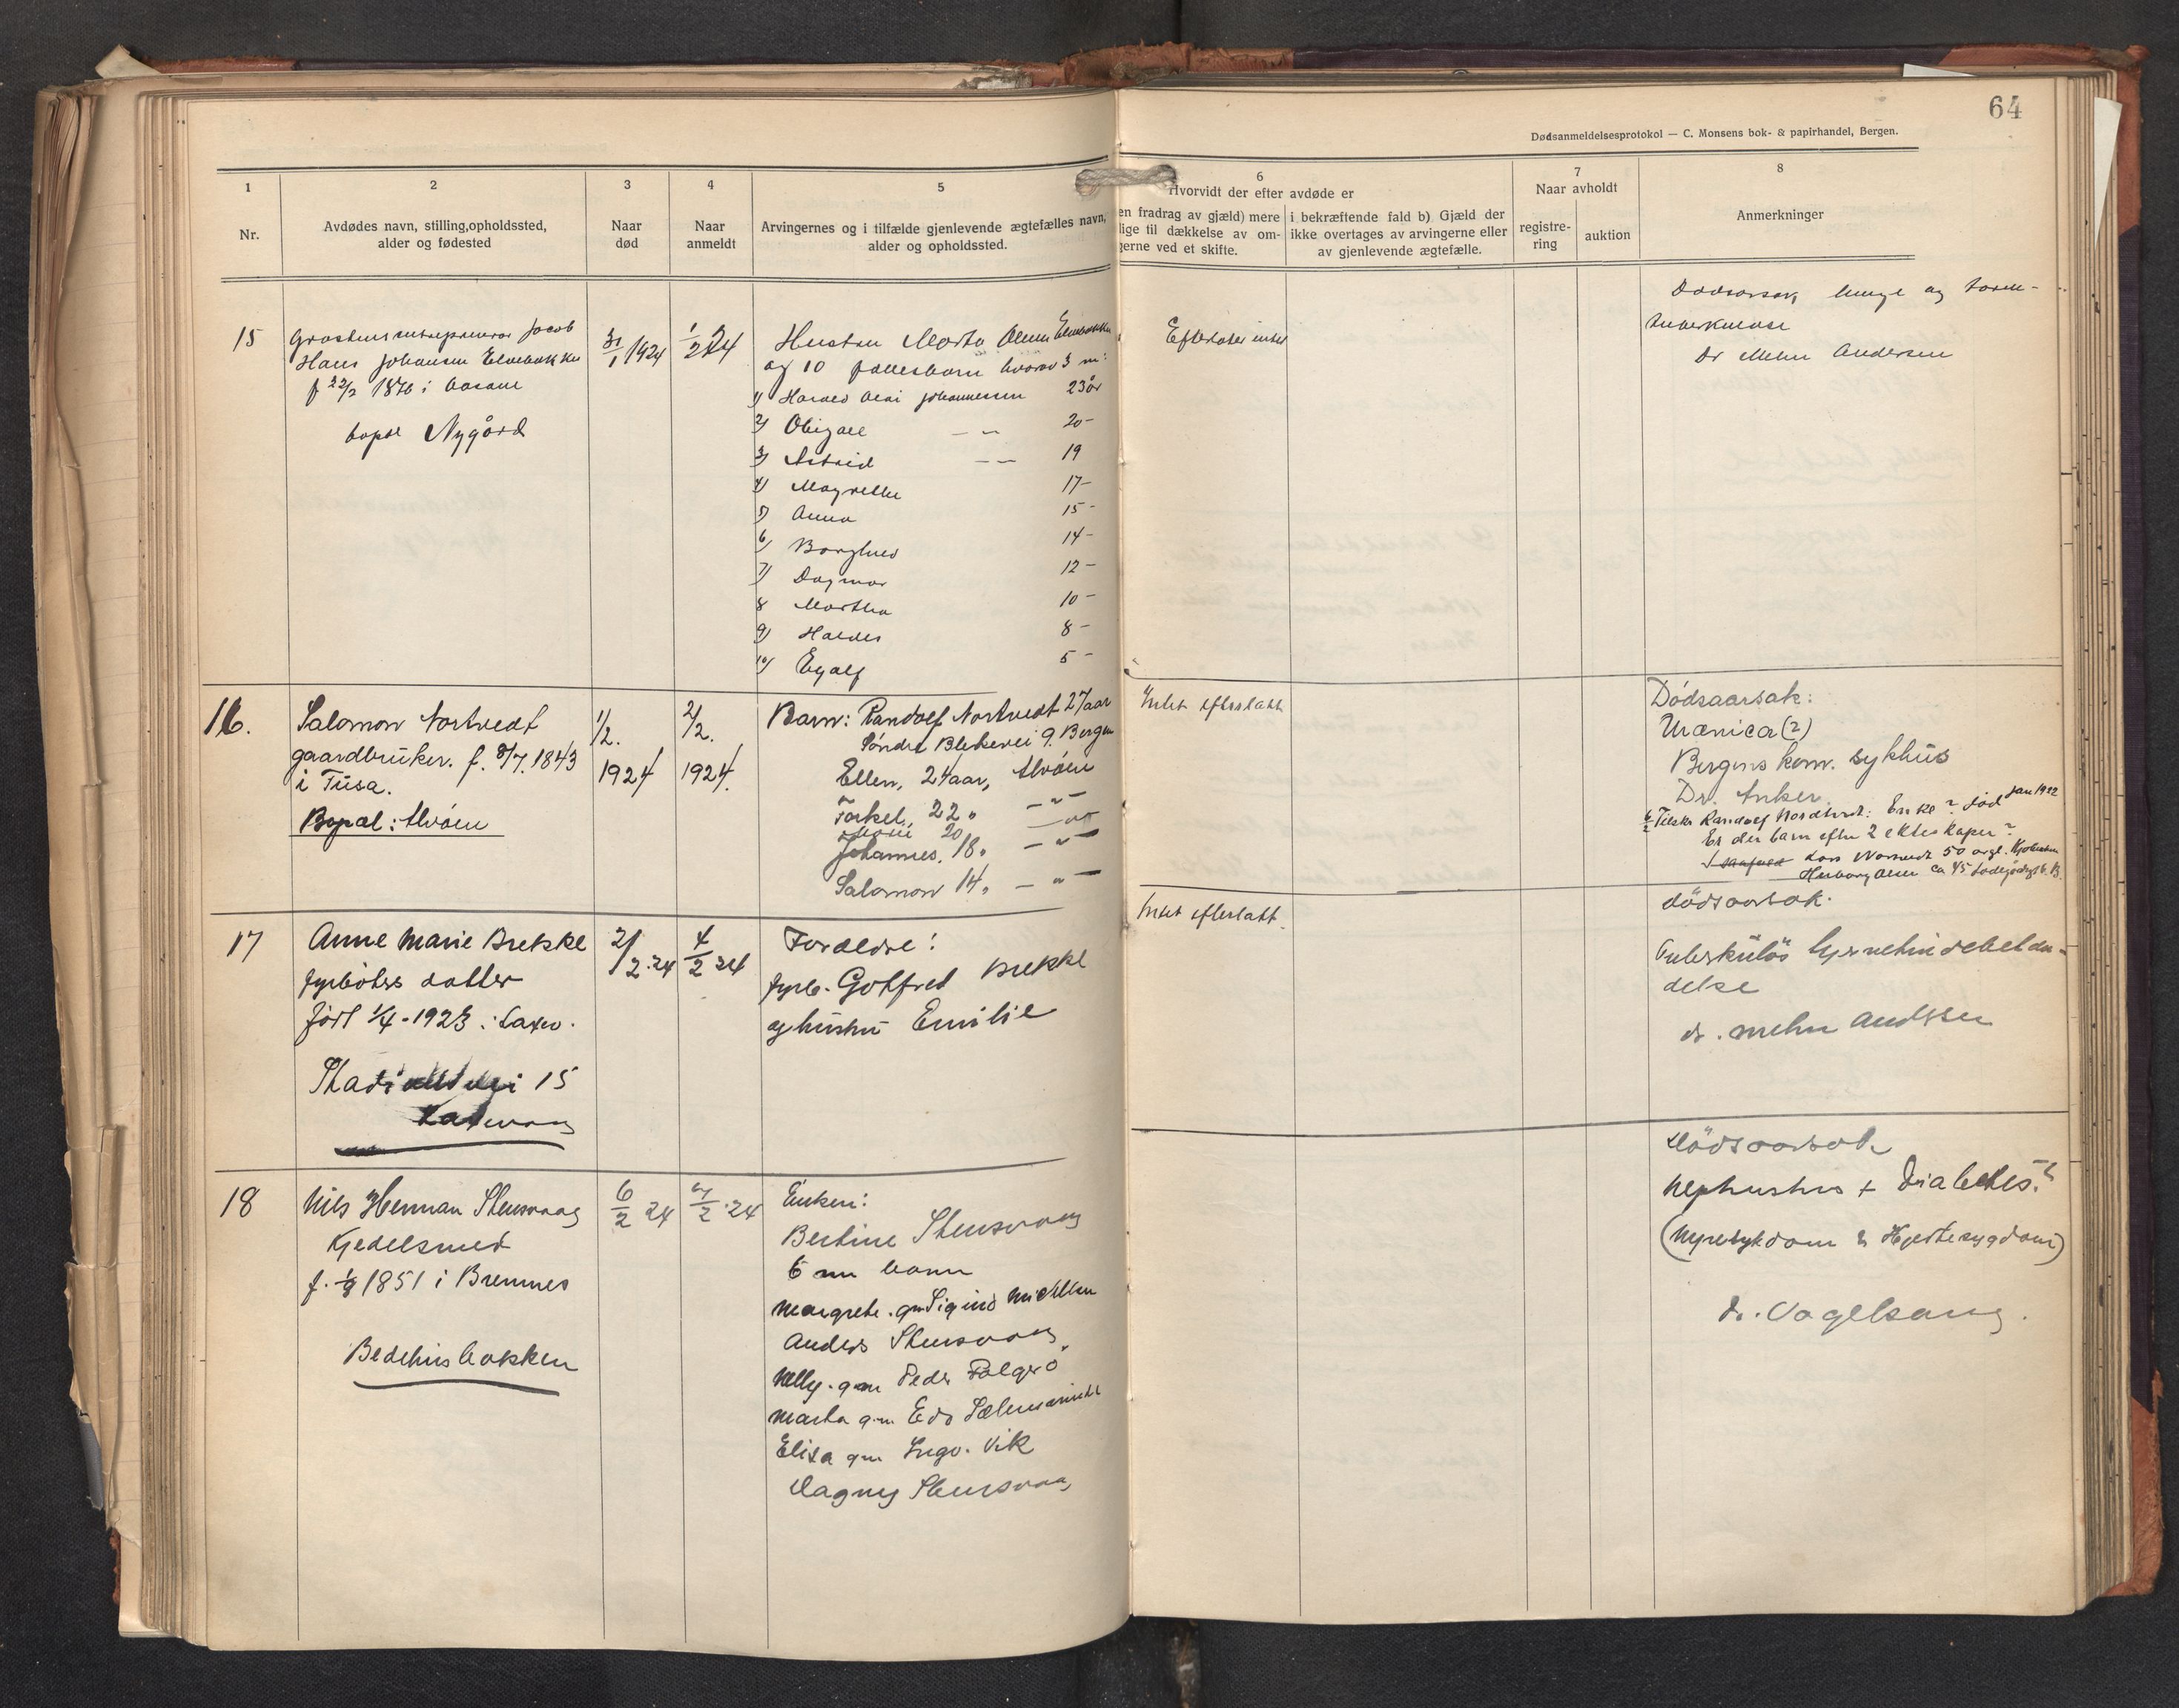 64
Dødsanmeldelsesprotokol — C. Monsens bok- & papirhandel, Bergen.
1
2
3
4
5
6
7
8
Nr.
Avdødes navn, stilling, opholdssted,
alder og fødested
Naar
død
Naar
anmeldt
Arvingernes og i tilfælde gjenlevende ægtefælles navn,
alder og opholdssted.
Hvorvidt der efter avdøde er
en fradrag av gjæld) mere
lige til dækkelse av om-
gerne ved et skifte.
i bekræftende fald b) Gjæld der
ikke overtages av arvingerne eller
av gjenlevende ægtefælle.
Naar avholdt
registre-
ring
auktion
Anmerkninger
15
Jacob
Hans Johansen
f 22/2 1870 i
bopel Nygård
31/1 1924
1/2 24
Hustru Marta Olsen
og 10 fællesbarn hvorav 3 m:
1) Harald Johannessen 23 år
2) Abigael — " 20 -
3) Astrid — — 19
4) Magnelle 17 -
5) Anna 15 -
6) Borghild 14 -
7) Dagmar 12 -
8 Martha 10 -
9) Haldis 8 -
10) 5 -
Efterlater intet
Dødsorsak, lunge og tarm-
tuberkulose
Dr Mehn Andersen
16.
Salomon Nortvedt
gaardbruker. f. 8/7. 1843
i Fusa.
Bopæl: Alvøen
1/2.
1924
2/2.
1924.
Barn: Randolf Nortvedt 27 aar
Søndre Blekevei 9. Bergen
Ellen, 24 aar, Alvøen
Torkel, 22 " — " —
20
Johannes, 18 " — " —
Salomon 14 " — " —
Intet efterlatt
Dødsaarsak:
Urænica (?)
Bergens kom. sykhus
Dr. Anker
Randolf Nordtvedt: Enke? død Jan 1922
Er der barn efter 2 ekteskaper?
Lars 50 årg.
Herborg Olsen ca 45
17
Anne Marie Brekke
fyrbøters datter
født 1/4 - 1923 i Laxev.
15
Laxevaag
2/2. 24
4/2 24
Forældre:
fyrb. Gotfred Brekke
og hustru Emilie
Intet efterlatt.
dödsaarsak.
Tuberkuløs hjernehindebetæn-
delse
dr. Mehn Andersen
18
Nils Herman Stensvaag
Kjedelsmed
f. 1/9 1851 i Bremnes
Bedehusbakken
6/2 24
7/2. 24
Enken:
Bertine Stensvaag
6 m barn
Margrete. gm Sigurd Mickelsen
Anders Stensvaag
Nelly. gm Peder Folgerø
Marta gm Edv
Elisa gm Ingv. Vik
Dagny Stensvaag
Dödsaarsak
+ Diabetes?
(Nyresykdom & Hjertesygdom)
dr. Vogelsang.